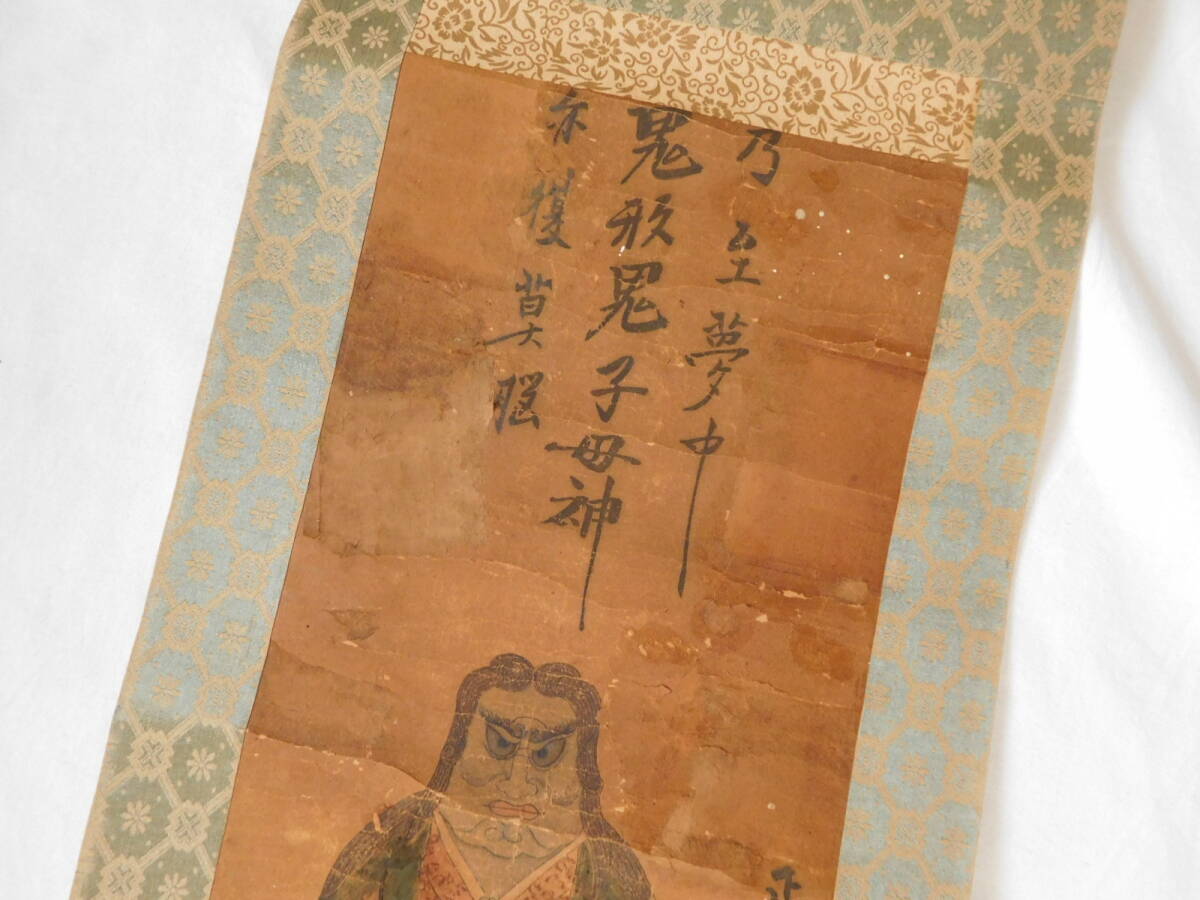 乃至夢中
鬼形鬼子母神
亦獲莫脳
正